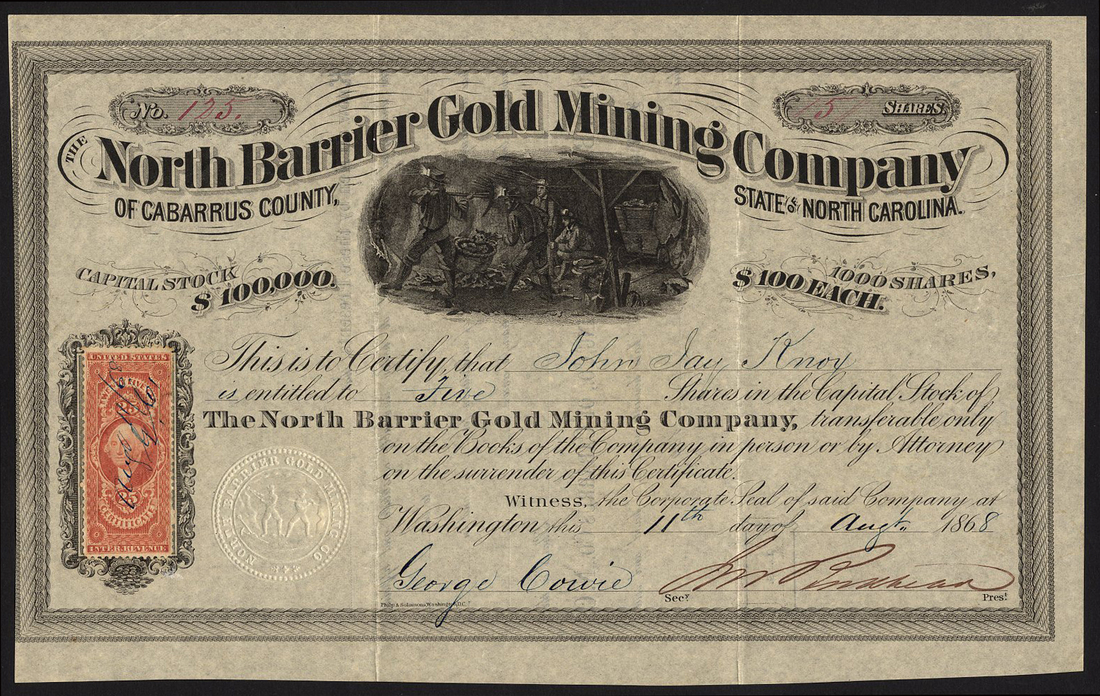 No. 125.
5 SHARES.
THE
North Barrier Gold Mining Company
OF CABARRUS COUNTY,
STATE OF NORTH CAROLINA.
CAPITAL STOCK
$100,000.
1000 SHARES,
$100 EACH.
UNITED STATES
25
CERTIFICATE
INTER. REVENUE
This is to Certify, that John Jay Knox
is entitled to Five Shares in the Capital Stock of
The North Barrier Gold Mining Company, transferable only
on the Books of the Company in person or by Attorney
on the surrender of this Certificate.
NORTH BARRIER GOLD MINING CO.
Witness, the Corporate Seal of said Company at
Washington this 11th day of Augt. 1868
George Cowie
Secy.
Prest.
Philp & Solomons, Washington, D.C.